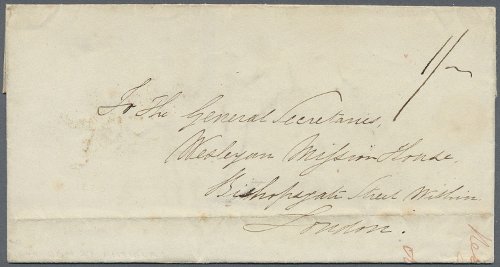 1/-
To The General Secretaries,
Wesleyan Mission House,
Bishopsgate Street Within
London.